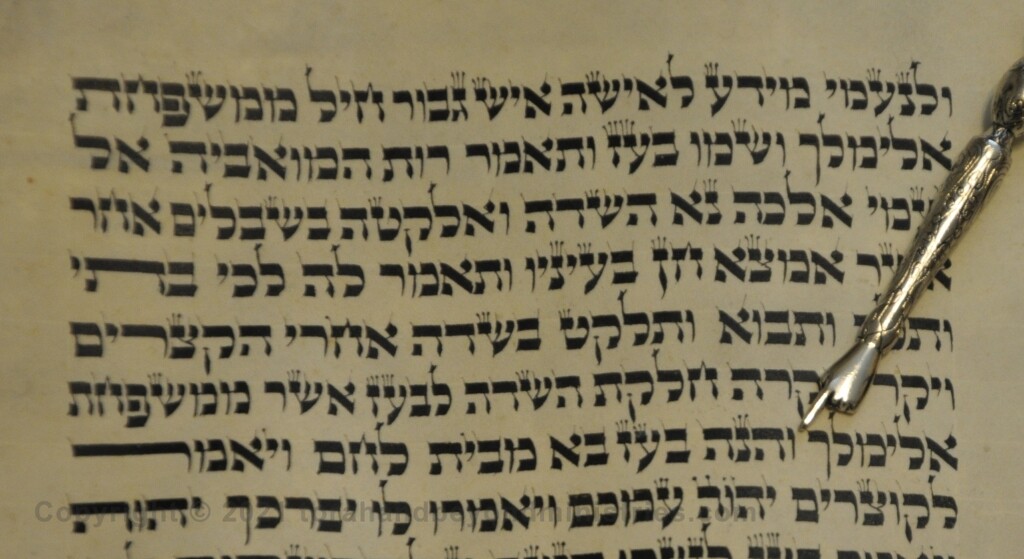 ולנעמי מידע לאישה איש גבור חיל ממשפחת
אלימלך ושמו בעז ותאמר רות המואביה אל
אלכה נא השדה ואלקטה בשבלים אחר
אמצא חן בעיניו ותאמר לה לכי בתי
ותבוא ותלקט בשדה אחרי הקצרים
ויקר חלקת השדה לבעז אשר ממשפחת
אלימלך והנה בעז בא מבית לחם ויאמר
לקוצרים יהוה עמכם ויאמרו לו יברכך יהוה
Copyright ©